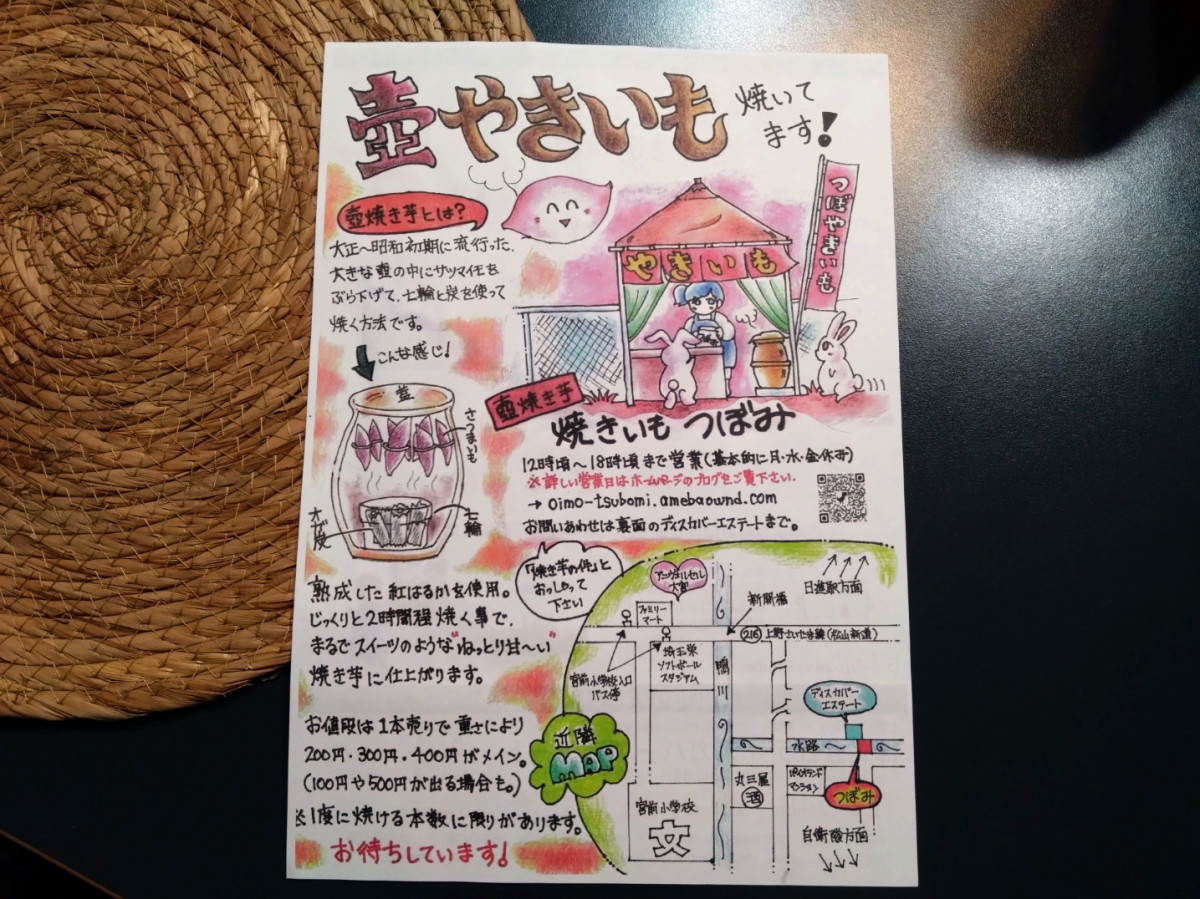 壺やきいも 焼いて
ます!
壺焼き芋とは?
大正〜昭和初期に流行った、
大きな壺の中にサツマイモを
ぶら下げて、七輪と炭を使って
焼く方法です。
こんな感じ!
壺
さつまいも
七輪
つぼやきいも
やきいも
壺焼き芋
焼きいも つぼみ
12時頃〜18時頃まで営業(基本的に月・水・金休み)
※詳しい営業日はホームページのブログをご覧下さい.
→ oimo-tsubomi.amebaownd.com
お問いあわせは裏面のディスカバーエステートまで。
「焼き芋の件」と
おっしゃって
下さい
熟成した紅はるかを使用。
じっくりと2時間程焼く事で、
まるでスイーツのような"ねっとり甘〜い"
焼き芋に仕上がります。
お値段は1本売りで重さにより
200円・300円・400円がメイン。
(100円や500円が出る場合も。)
※1度に焼ける本数に限りがあります。
お待ちしています!
近隣
MAP
アニヴェルセル
大宮
ファミリー
マート
新開橋
日進駅方面
216 上野さいたま線(松山新道)
宮前小学校入口
バス停
埼玉栄
ソフトボール
スタジアム
鴨川
ディスカバー
エステート
水路
丸三屋
酒
マンション
つぼみ
宮前小学校
文
自衛隊方面